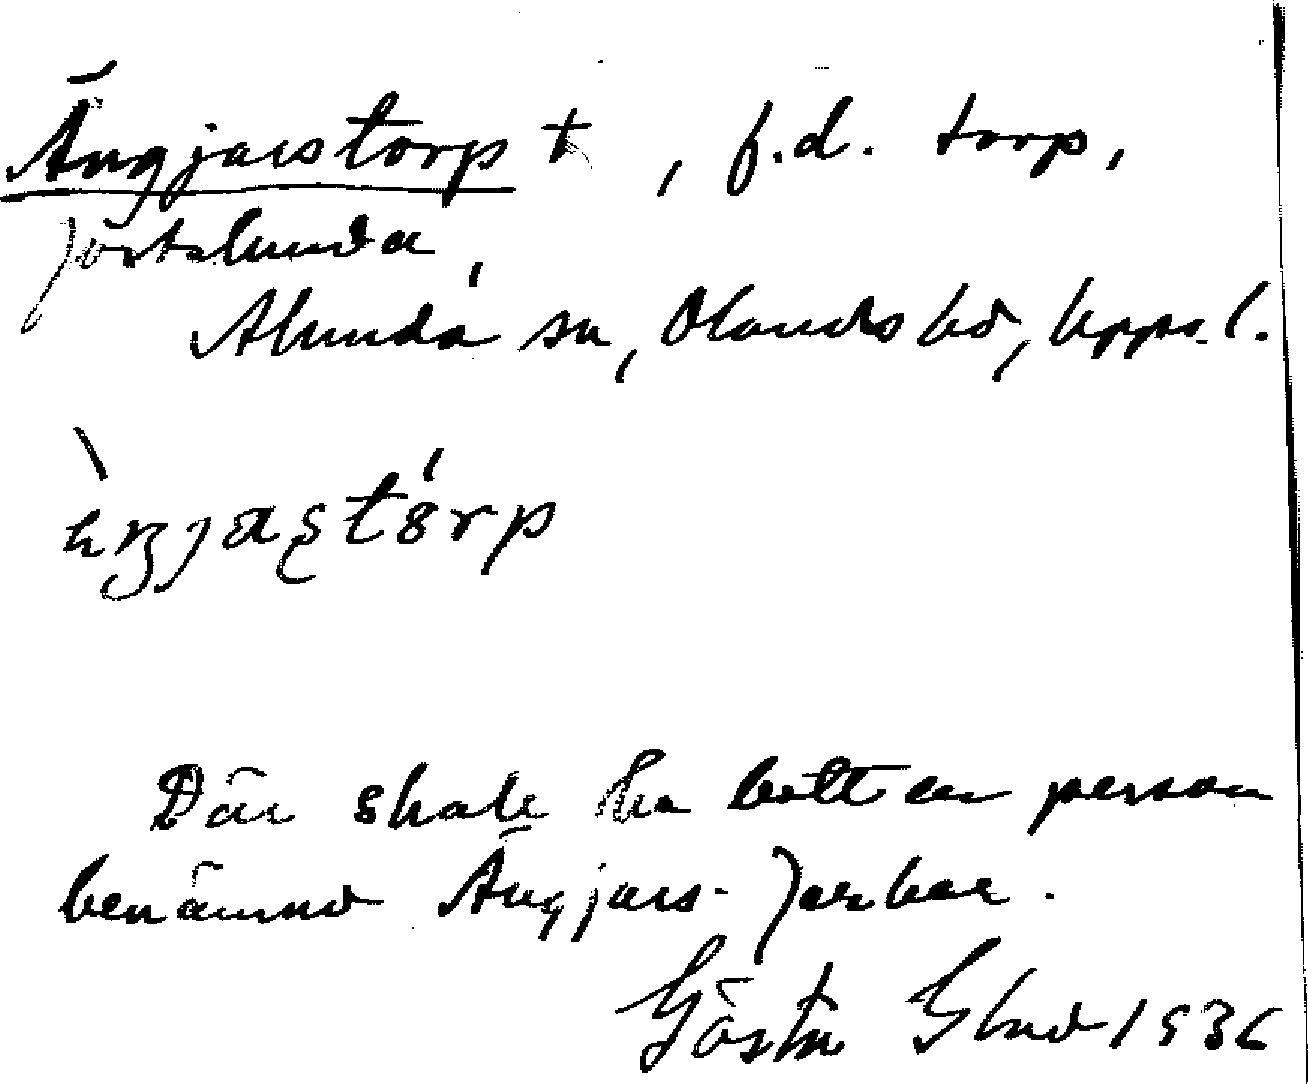 Ängjarstorp † , f.d. torp,
Jörtslunda,
Alunda sn, Olands hd, Upps. l.
Där skall ha bott en person
benämnd Ängjars-
Gösta 1936